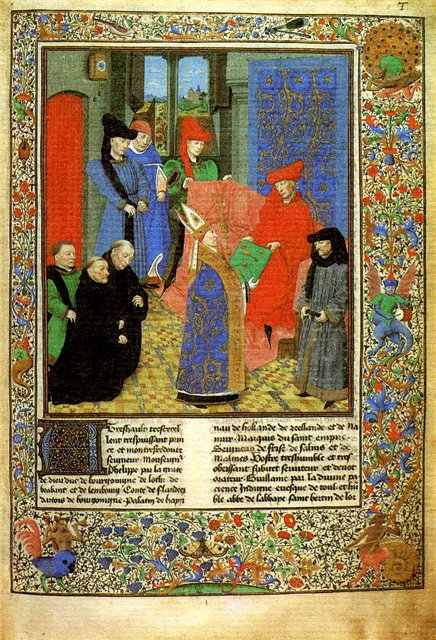 T
Treshault tresexcel
lent trespuissant prin
ce et montresredoubte
seigneur
Phelippe par la grace
de dieu duc de bourgoingne de loth. de
brabant et de lembourg Conte de flandres
dartois de bourgoingne. Palatin de
nau de hollande de zeellande et de Na
mur. Marquis du saint empire.
Seigneur de frise de salins et de
Malines Vostre treshumble et tres
obeissant subiect seruiteur et deuot
orateur Guillaume par la diuine pa
cience Indigne euesque de toul et hum
ble abbe de labbaye saint bertin de